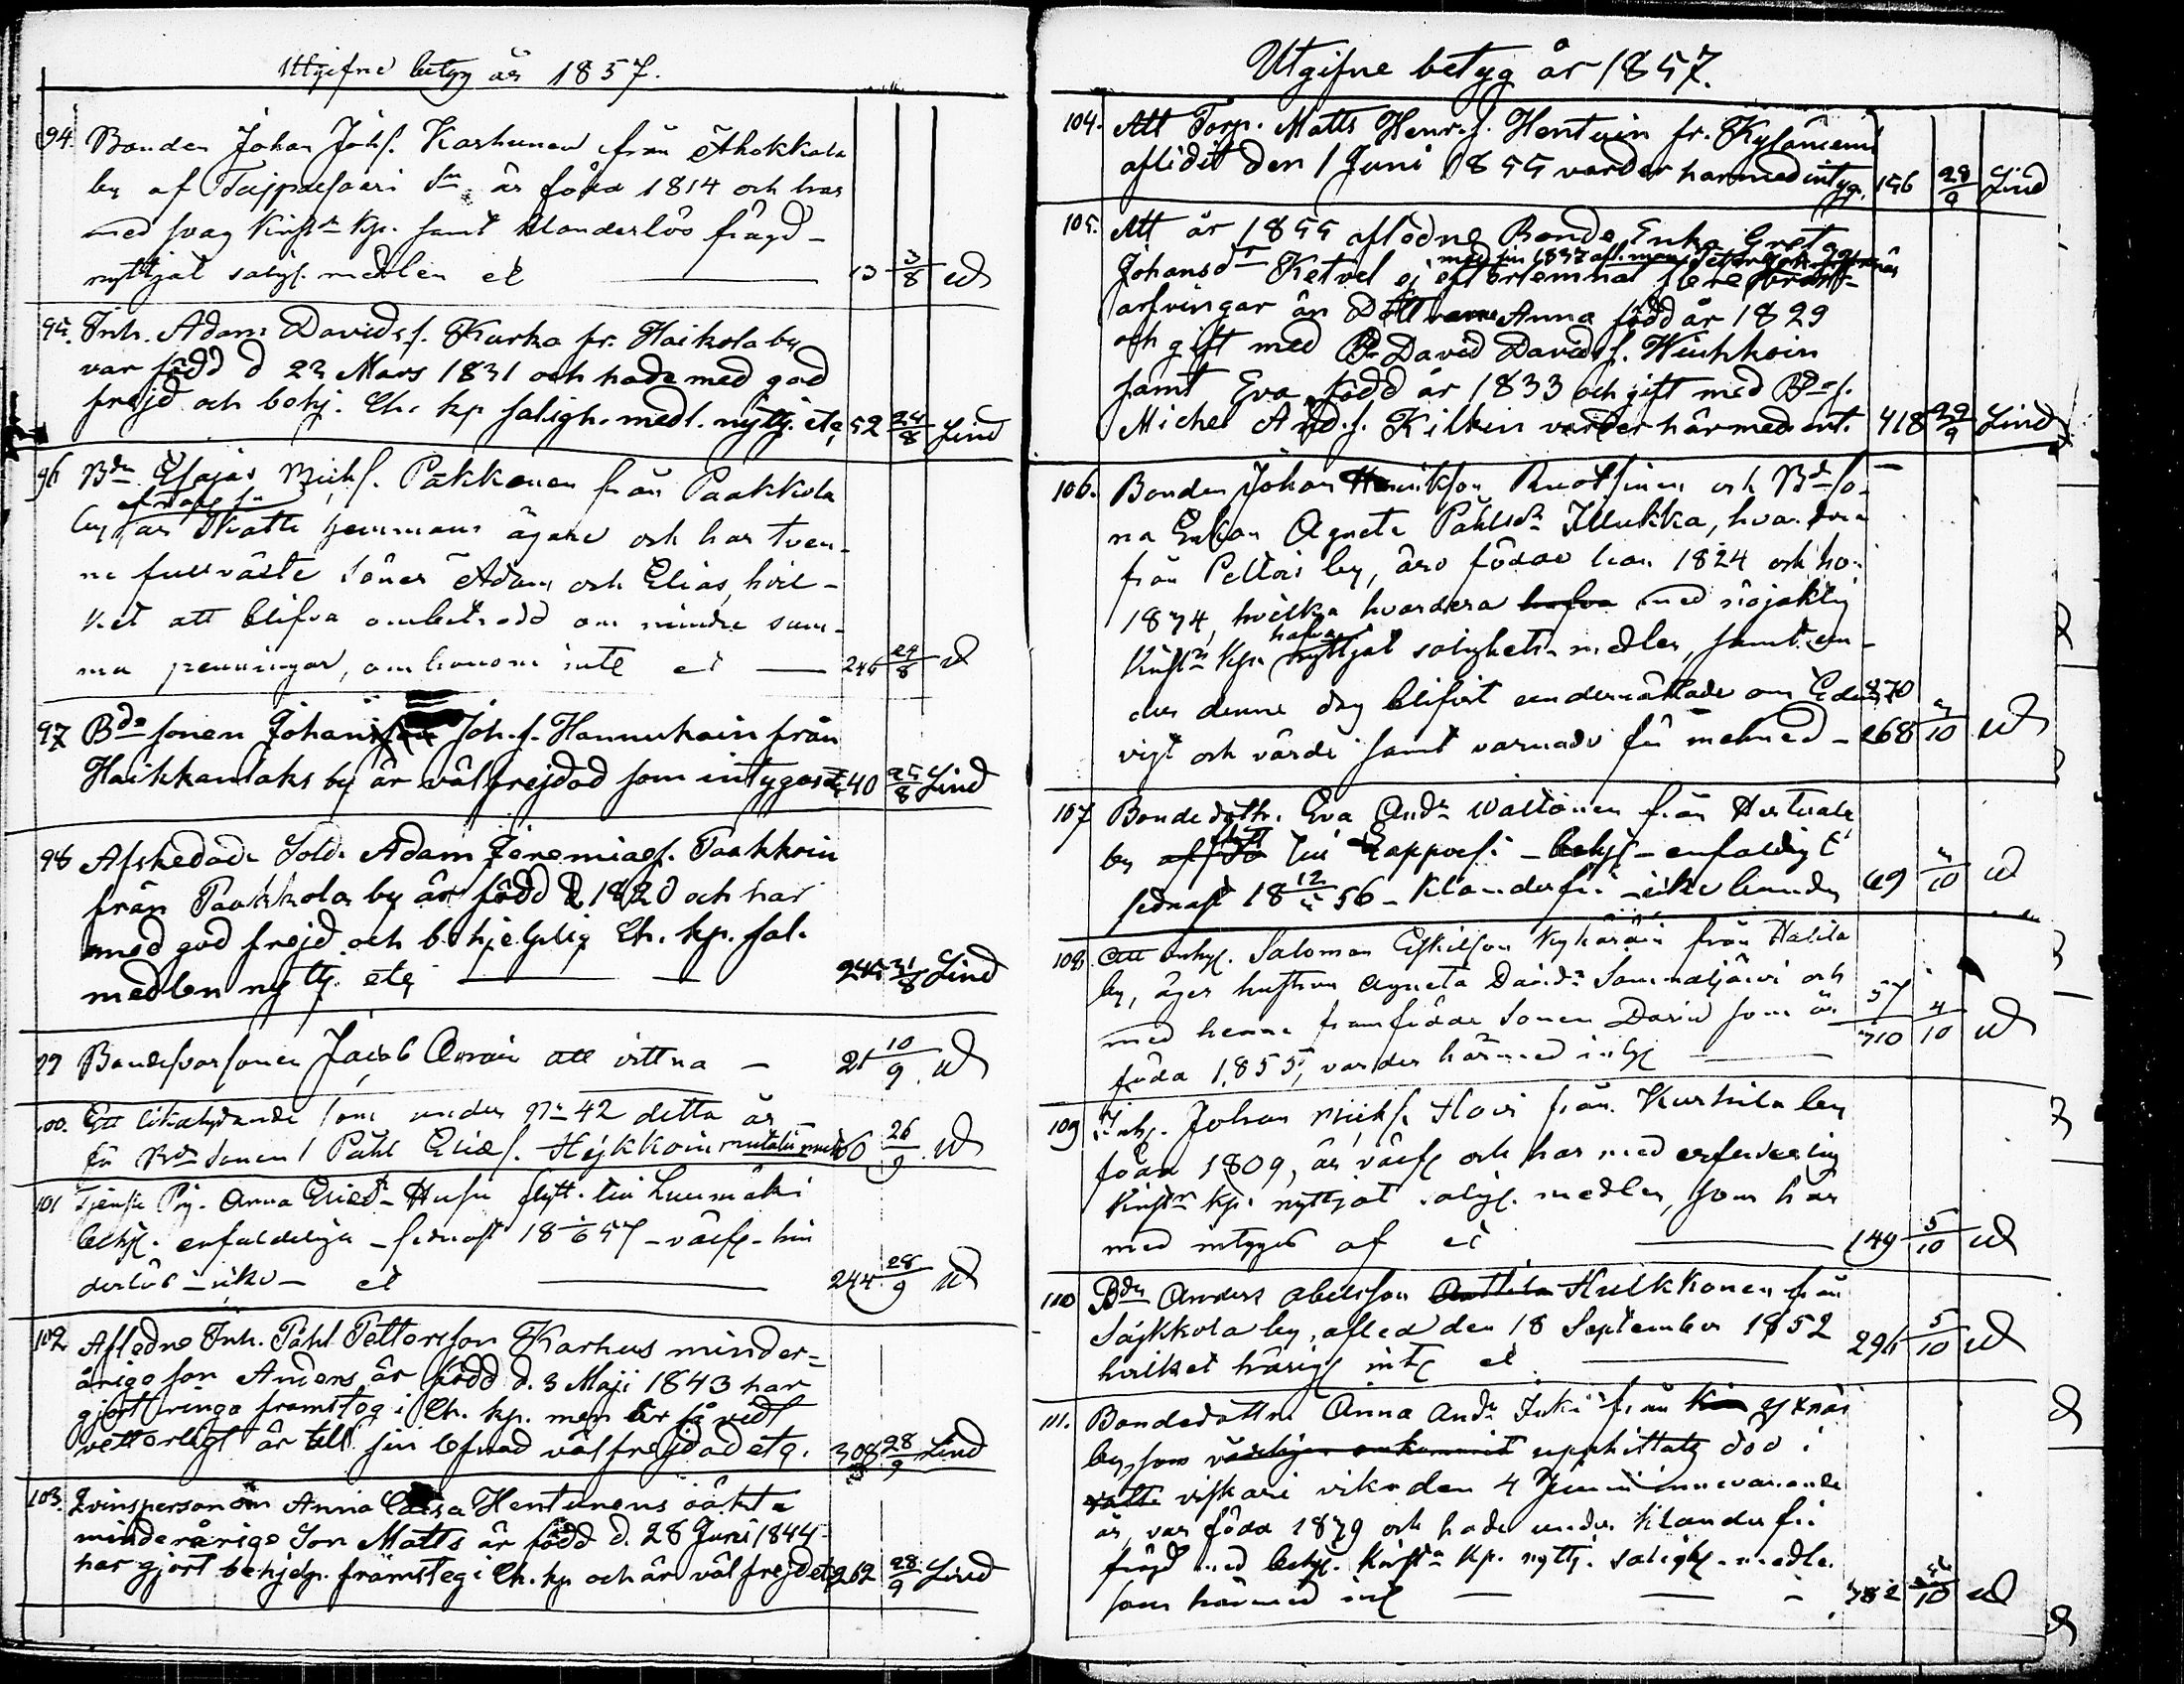 Utgifne betyg år 1857.
94. Bonden Johan Johs. Karhunen från Ahokkala
by af Taipalsaari Sn är född 1814 och har
med svag Krist: Kp. samt klanderlös frägd
nyttjat saligh. medlen et 13 3/8 ud
95. Inh. Adam Davids s. Kurko fr. Haikola by
var född d 23 Mars 1831 och hade med god
frejd och behj. Ch. kp saligh. medl. nyttj. etc 52 24/8 Lind
96 Bdn Esajas Mich s. Pakkanen från Paakkola
by är Skatte hemmans ägare och har tven-
ne fullväxte söner Adam och Elias, hvil-
ket att blifva ombetrodd om mindre sum-
ma penningar, om honom inte et 246 24/8 ud
97 Bde sonen Johan Joh. s. Hannukain från
Haikkanlaks by är välfrejdad som intygas etc 40 25/8 Lind
98 Afskedade Sold. Adam Jeremias s. Paakkoin
från Paakkola by är född 1820 och har
med god frejd och behjelplig Ch. kp. sal.
medlen nyttj. etc 245 31/8 Lind
99 Bonde sonen Jacob att vittna - 21 10/9 ud
100. Ett likalydande som under No 42 detta år
för Bde sonen Påhl Elias s. Hejkkoin 60 26/9 ud
101 Anna Elies dr Husu flytt. till Luumäki
behj. enfaldeliga - sednast 18 57 - välfr - hin
derlös - icke - et 244 28/9 ud
102 Aflidne Inh. Påhl Pettersson Karhus minder-
årige son Anders är född d. 3 Maji 1843 har
gjort ringa framsteg i Ch. kp. men så vidt
vetterligt är till sin lefnad välfrejdad etc. 308 28/9 Lind
103. Qvinspersonen Anna Caisa Hentunens oäkta
minderårige Son Matts är född d. 28 Juni 1844
har gjort behjelp. framsteg i Ch. kp och är välfrejd etc 262 28/9 Lind
Utgifne betyg år 1857.
104. Att Torp. Matts Henr. s. Hentuin fr. Kyläniemi
aflidit den 1 Juni 1855 varder härmed intyg. 156 28/9 Lind
105. Att år 1855 aflidne Bonde Enka Greta
Johans dr Ketvel ej efterlemnat flere
arfvingar än Anna född år 1829
och gift med Bn David Davids s. Wiukkoin
samt Eva född år 1833 och gift med Bde s.
Michel And. s. Kilkin varder härmed int. 418 29/9 Lind
106. Bonden Johan Henriksson Ruotsinen och Bde so-
na Enkan Agneta Påhls dr Illukka, hvardera
från Peltois by, äro födde han 1824 och hon
1834, hvilka hvardera hafva med nöjaktig
Krist: Kp. hafva nyttjat salighets medlen, samt
denne dag blifvit underrättade om Edens 370
vigt och värde samt varnade för mened - 268 /10 ud
107 Bondedottr. Eva Ands Waltonen från Hertuala
by flytt till Lappvesi - behj - enfaldigt
sednast 18 12/ 56 - klanderfri - icke bunden 69 /10 ud
108. Att Inhys. Salomon Eskilsson från Halila
by, äger hustrun Agneta Davids Sammaljärvi och
med henne framfödde sonen David som är 57
född 1855, varder härmed intyg 310 4/10 ud
109 Inhys. Johan Mich s. Hovi från Kurhila by
född 1809, är välfr och har med erforderlig
Krist: kp. nyttjat saligh. medlen, som här
med intygas af et 149 5/10 ud
110 Bdn Anders Abelsson Hulkkonen från
Sajkkola by, afled den 18 September 1852
hvilket härigenom int et 296 5/10 ud
111. Bondedottren Anna Ands Inki från
by, som upphittats död i
viken den 4 Junii innevarande
år, var född 1829 och hade under klanderfri
frägd med behj. Krist: Kp. nyttj. saligh. medlen
som härmed int 382 /10 ud